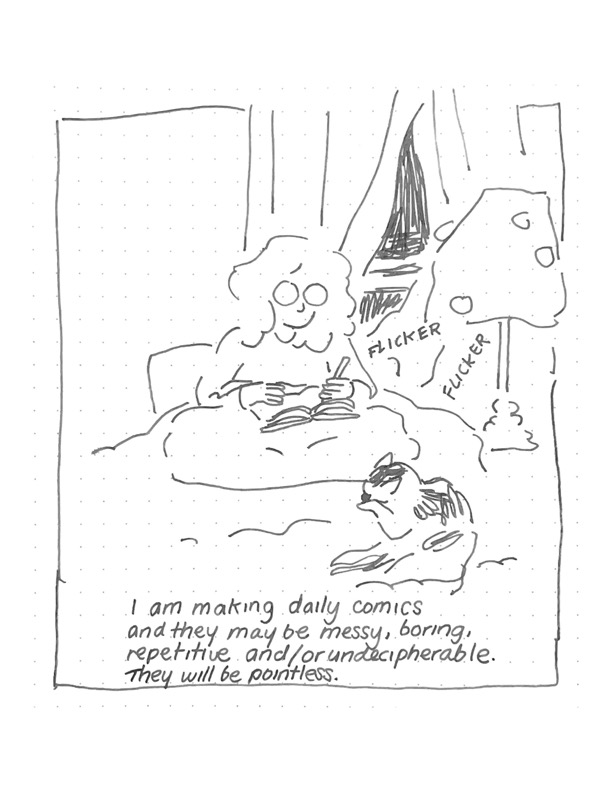 FLICKER
FLICKER
I am making daily comics
and they may be messy, boring,
repetitive and/or undecipherable.
They will be pointless.